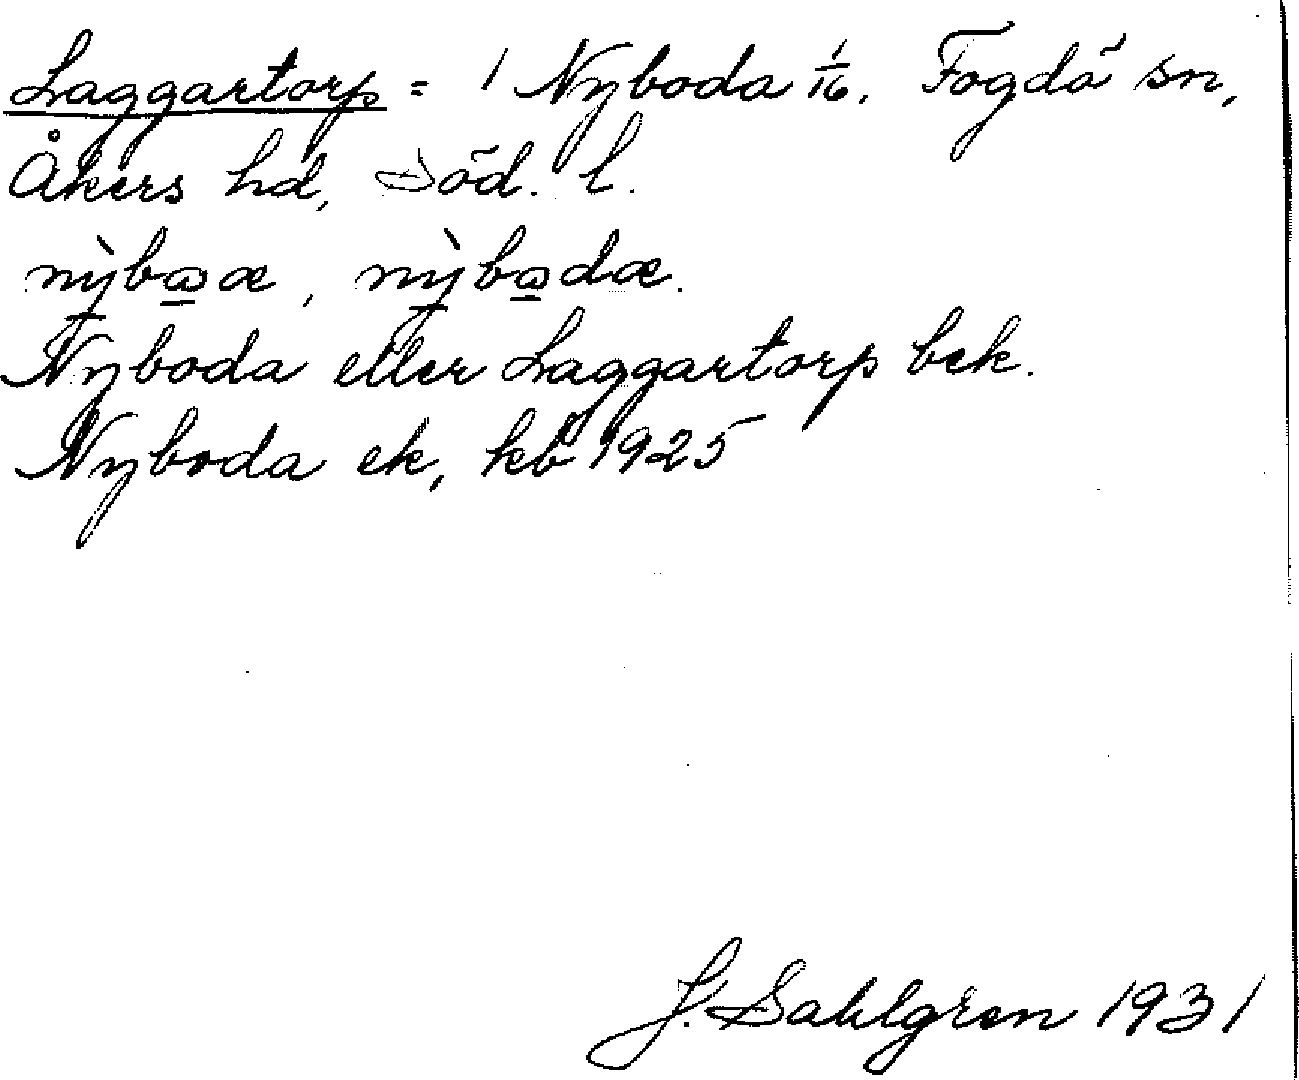 Laggartorp = 1 Nyboda 1/16, Fogdö sn,
Åkers hd, Söd. l.
nỳbωæ, nỳbωdæ.
Nyboda eller Laggartorp bek.
Nyboda ek, kb 1925
J. Sahlgren 1931